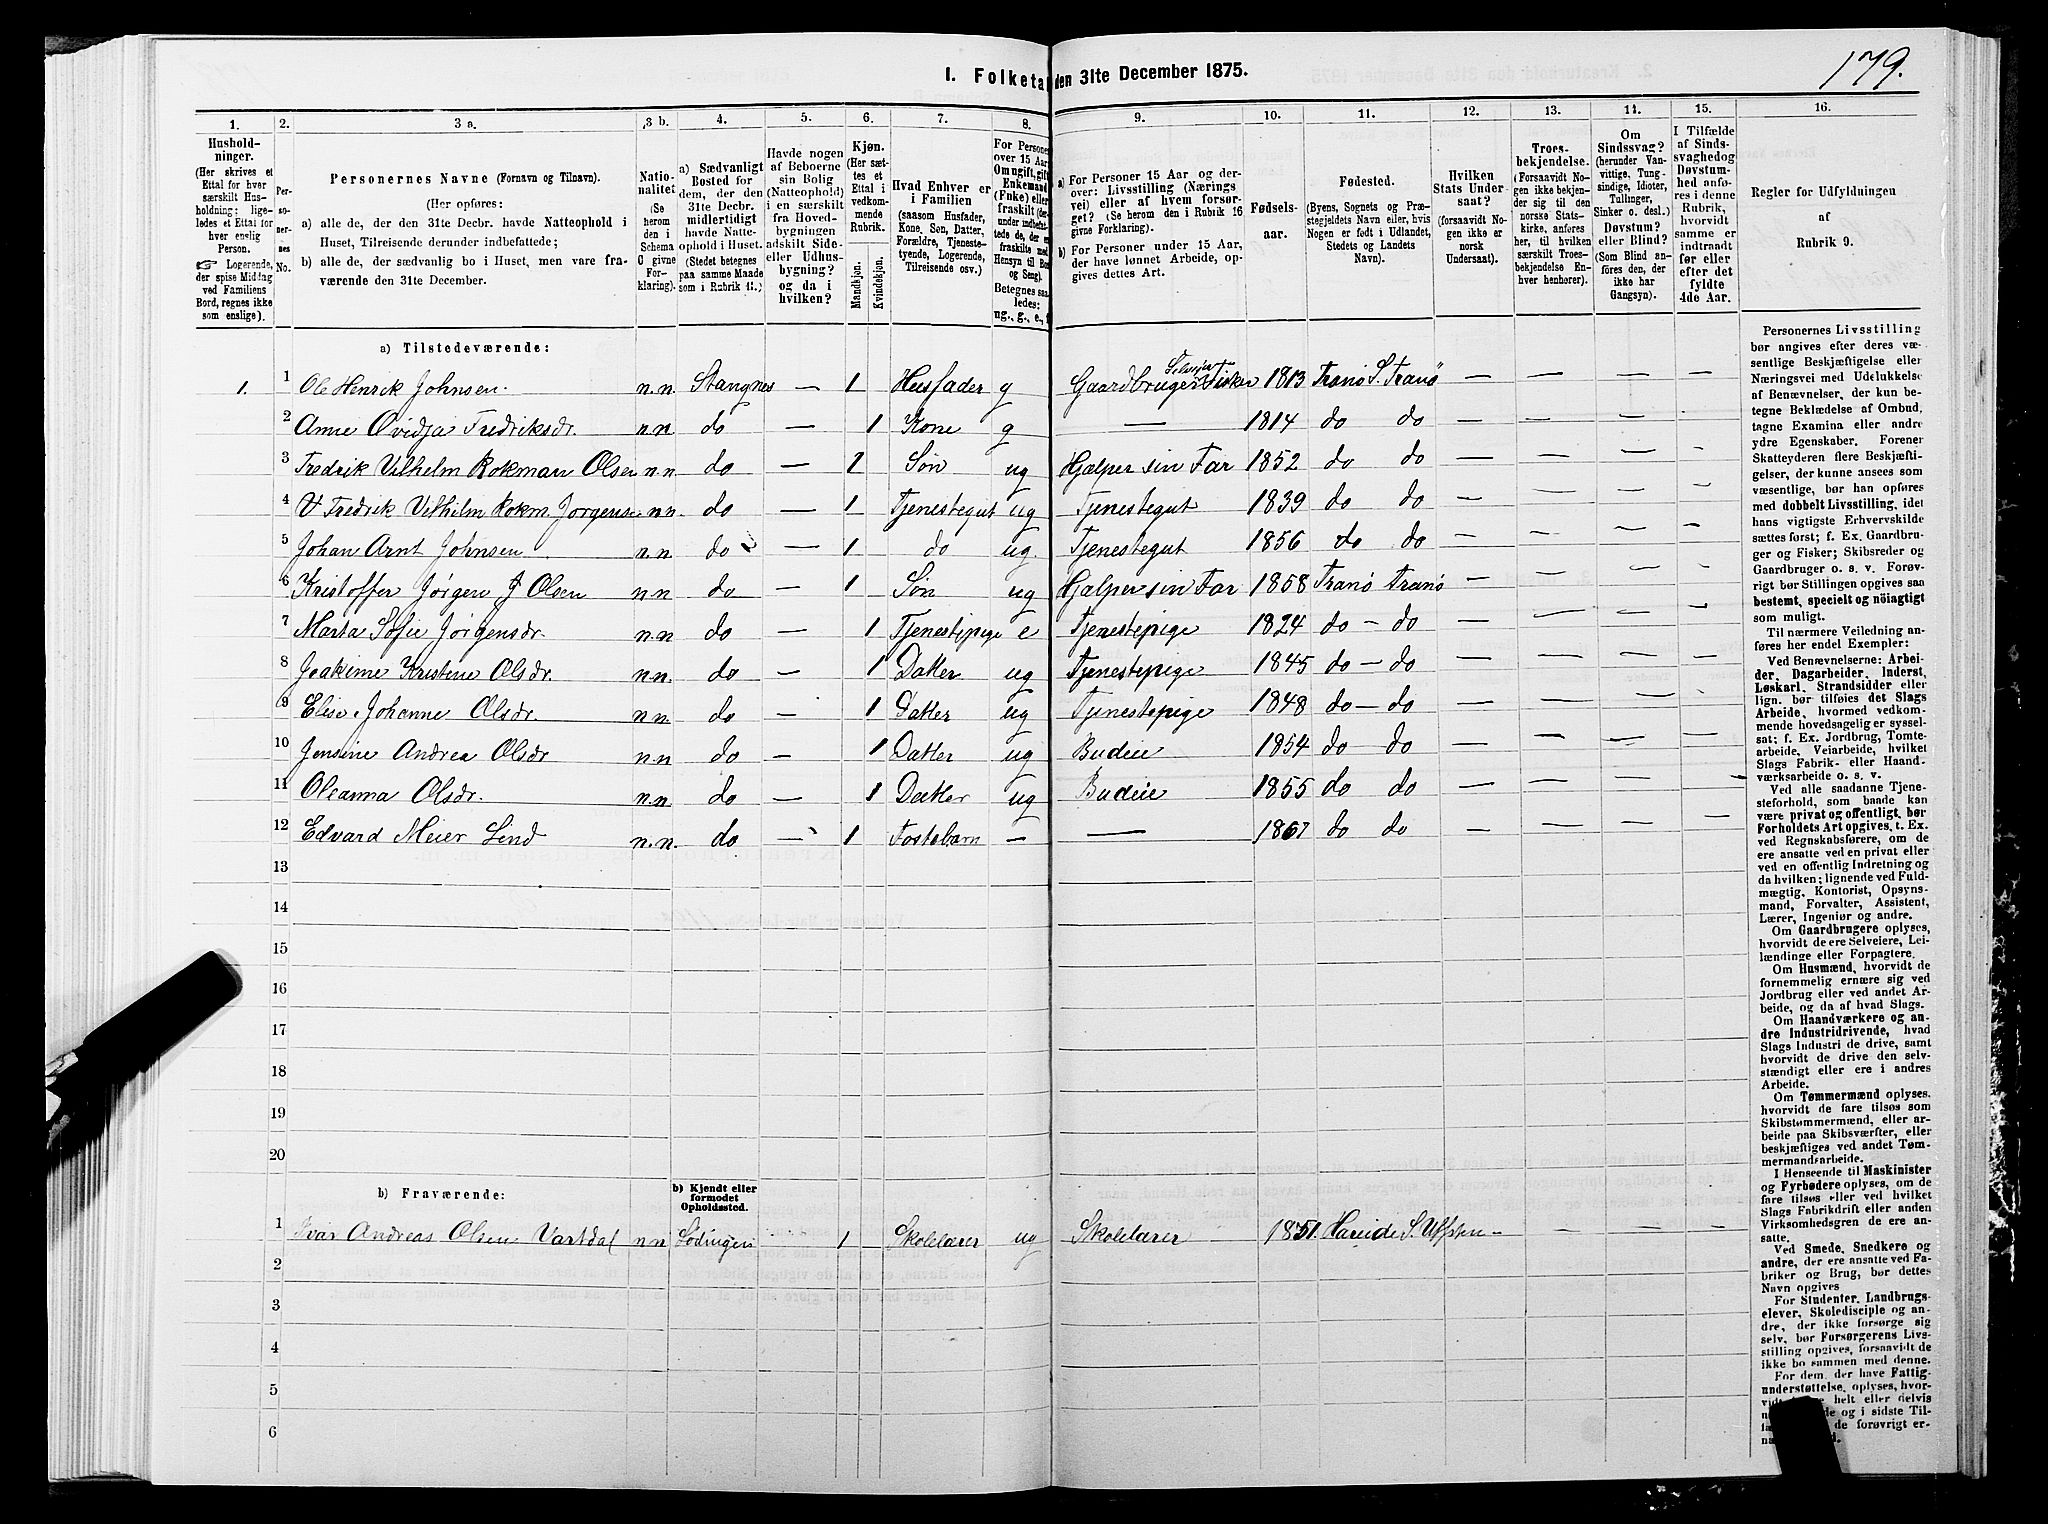 179.
1. Folketal den 31te December 1875.
1. 2. 3 a. 3 b. 4. 5. 6. 7. 8. 9. 10. 11. 12. 13. 14. 15. 16.
Hushold-
ninger.
(Her skrives et
Ettal for hver
særskilt Hus-
holdning; lige-
ledes et Ettal for
hver enslig
Person.
☞ Logerende,
der spise Middag
ved Familiens
Bord, regnes ikke
som enslige).
Per-
so-
ner-
nes
No.
Personernes Navne (Fornavn og Tilnavn).
(Her opføres:
a) alle de, der den 31te Decbr. havde Natteophold i
Huset, Tilreisende derunder indbefattede;
b) alle de, der sædvanlig bo i Huset, men vare fra-
værende den 31te December.
Natio-
nalitet
(Se
herom
den i
Schema
C givne
For-
klaring).
a) Sædvanligt
Bosted for
dem, der den
31te Decbr.
midlertidigt
havde Natte-
ophold i Huset.
(Stedet betegnes
paa samme Maade
som i Rubrik 11.)
Havde nogen
af Beboerne
sin Bolig
(Natteophold)
i en særskilt
fra Hoved-
bygningen
adskilt Side-
eller Udhus-
bygning?
og da i
hvilken?
Kjøn.
(Her sæt-
tes et
Ettal i
vedkom-
mende
Rubrik.
Mandkjøn.
Kvindekjøn.
Hvad Enhver er
i Familien
(saasom Husfader,
Kone, Søn, Datter,
Forældre, Tjeneste-
tyende, Logerende,
Tilreisende osv.)
For Personer
over 15 Aar
Om ugift, gift,
Enkemand
(Enke) eller
fraskilt
Betegnes saa-
ledes:
ug., g., e., f.
a) For Personer 15 Aar og der-
over: Livsstilling (Nærings
vei) eller af hvem forsør-
get? (Se herom den i Rubrik 16
givne Forklaring).
b) For Personer under 15 Aar,
der have lønnet Arbeide, op-
gives dettes Art.
Fødsels-
aar.
Fødested.
(Byens, Sognets og Præ-
stegjeldets Navn eller, hvis
Nogen er født i Udlandet,
Stedets og Landets
Navn).
Hvilken
Stats Under-
saat?
(forsaavidt No-
gen ikke er
norsk
Undersaat).
Troes-
bekjendelse.
(Forsaavidt No-
gen ikke bekjen-
der sig til den
norske Stats-
kirke, anføres
her, til hvilken
særskilt Troes-
bekjendelse En-
hver henhører).
Om
Sindssvag?
(herunder Van-
vittige, Tung-
sindige, Idioter,
Tullinger,
Sinker o. desl.)
Døvstum?
eller Blind?
(Som Blind an-
føres den, der
ikke har
Gangsyn).
I Tilfælde
af Sinds-
svaghed og
Døvstum-
hed anfø-
res i denne
Rubrik,
hvorvidt
samme er
indtraadt
før eller
efter det
fyldte
4de Aar.
Regler for Udfyldningen
af
Rubrik 9.
a) Tilstedeværende:
1. 1 Ole Henrik Johnsen. n.n. Stangnes — 1 Husfader g Gaardbruger Selveier Fisker 1813 Tranø S. Tranö — — — —
2 Anne Ovidja Fredriksdr. n.n do — 1 Kone g — 1814 do do — — — —
3 Fredrik Vilhelm Rokman Olsen n.n do — 1 Søn ug Hjælper sin Far 1852 do do — — — —
4 Fredrik Vilhelm Rokm. Jørgensen n.n. do — 1 Tjenestegut ug Tjenestegut 1839 do do — — — —
5 Johan Arnt Johnsen n.n do — 1 do ug. Tjenestegut 1856 do do — — — —
6 Kristoffer Jørgen J Olsen n.n do — 1 Søn ug Hjælper sin Far 1858 Tranø Tranø — — — —
7 Marta Sofie Jørgensdr. n.n do — 1 Tjenestepige e Tjenestepige 1824 do — do — — — —
8 Joakime Kristine Olsdr. n.n. do — 1 Datter ug Tjenestepige 1845 do — do — — — —
9 Elise Johanne Olsdr. n.n. do — 1 Datter ug Tjenestepige 1848 do — do — — — —
10 Jensine Andrea Olsdr n.n do — 1 Datter ug Budeie 1854 do do — — — —
11 Oleanna Olsdr. n.n. do — 1 Datter ug Budeie 1855 do do — — — —
12 Edvard Meier Lind n.n. do — 1 Fostebarn — — 1867 do do — — — —
13
14
15
16
17
18
19
20
b) Fraværende:
b) Kjendt eller
formodet
Opholdssted.
1 Ivar Andreas Olsen Vartdal n.n Lødingen 1 Skolelærer ug Skolelærer 1851. Hareide S. Ulfsten —
2
3
4
5
6
Personernes Livsstilling
bør angives efter deres væ-
sentlige Beskjæftigelse eller
Næringsvei med Udelukkelse
af Benævnelser, der kun be-
tegne Beklædelse af Ombud,
tagne Examina eller andre
ydre Egenskaber. Forener
Skatteyderen flere Beskjæfti-
gelser, der kunne ansees som
væsentlige, bør han opføres
med dobbelt Livsstilling, idet
hans vigtigste Erhvervskilde
sættes først; f. Ex. Gaardbru-
ger og Fisker; Skibsreder og
Gaardbruger o. s. v. Forøv-
rigt bør Stillingen opgives saa
bestemt, specielt og nöiagtigt
som muligt.
Til nærmere Veiledning an-
føres her endel Exempler:
Ved Benævnelserne: Arbei-
der, Dagarbeider, Inderst,
Løskarl, Strandsidder eller
lign. bør tilføies det Slags
Arbeide, hvormed vedkom-
mende hovedsagelig er syssel-
sat; f. Ex. Jordbrug, Tomte-
arbeide, Veiarbeide, hvilket
Slags Fabrik- eller Haand-
værksarbeide o. s. v.
Ved alle saadanne Tjene-
steforhold, som baade kan
være privat og offentligt, bør
Forholdets Art opgives, t. Ex.
ved Regnskabsførere, om de
ere ansatte ved en privat eller
ved en offentlig Indretning og
da hvilken; lignende ved Fuld-
mægtig, Kontorist, Opsyns-
mand, Forvalter, Assistent,
Lærer, Ingeniør og andre.
Om Gaardbrugere oplyses,
hvorvidt de ere Selveiere, Lei-
lændinge eller Forpagtere.
Om Husmænd, hvorvidt de
fornemmelig ernære sig ved
Jordbrug eller ved andet Ar-
beide, og da af hvad Slags.
Om Haandværkere og an-
dre Industridrivende, hvad
Slags Industri de drive, samt
hvorvidt de drive den selv-
stændigt eller ere i andres
Arbeide.
Om Tømmermænd oplyses,
hvorvidt de fare tilsøs som
Skibstømmermænd, eller ar-
beide paa Skibsværfter, eller
beskjæftiges ved andet Tøm-
mermandsarbeide.
I Henseende til Maskinister
og Fyrbødere oplyses, om de
fare tilsøs eller ved hvilket
Slags Fabrikdrift eller anden
Virksomhedsgren de ere an-
satte.
Ved Smede, Snedkere og
andre, der ere ansatte ved Fa-
briker og Brug, bør dettes
Navn opgives
For Studenter, Landbrugs-
elever, Skoledisciple og an-
dre, der ikke forsørge sig
selv, bør Forsørgerens Livs-
stilling opgives, forsaavidt de
ikke bo sammen med denne.
For dem, der have Fattig-
understøttelse, oplyses, hvor-
helt eller delvis
de og i sidste Til-
de forøvrigt er-